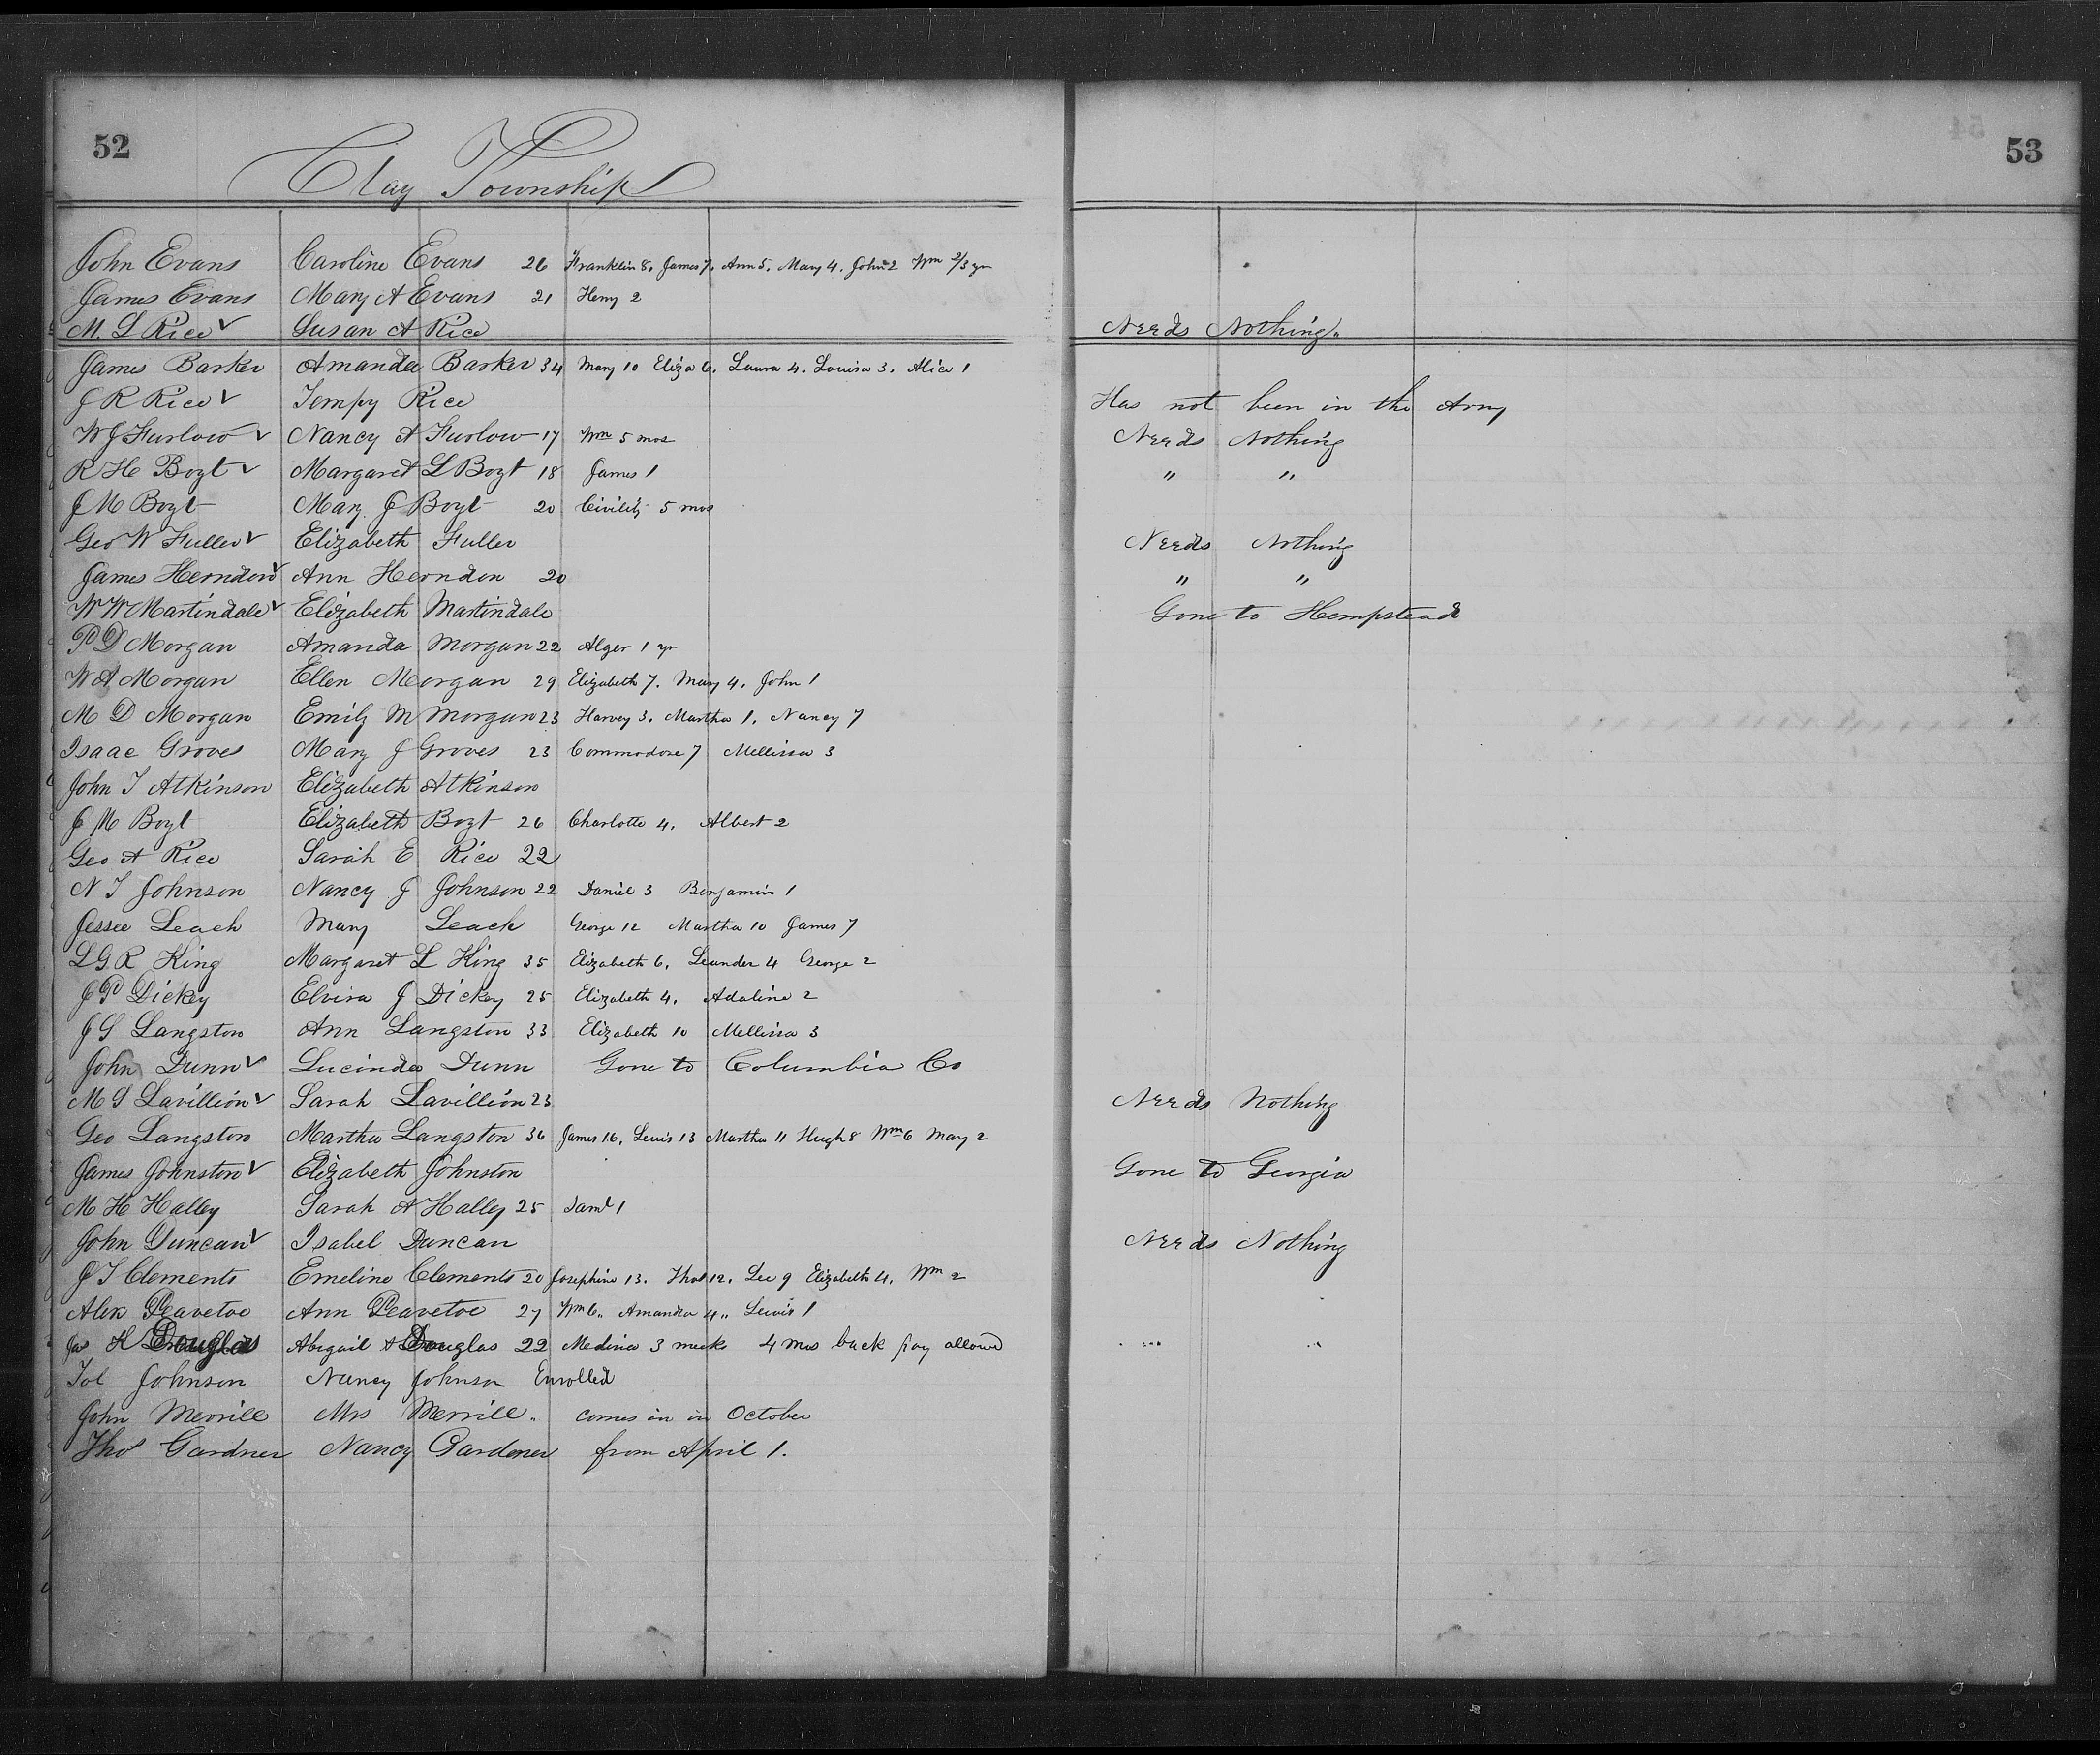 52
53
Clay Township
John Evans Caroline Evans 26 Franklin 8. James 7. Ann 5. Mary 4. John 2 Wm 2/3 yr
James Evans Mary A Evans 21 Henry 2
M. L Rice ✓ Susan A Rice Needs Nothing.
James Barker Amanda Barker 34 Mary 10 Eliza 6. Laura 4. Louisa 3. Alice 1
J R Rice ✓ Tempy Rice Has not been in the Army
W J Furlow ✓ Nancy A Furlow 17 Wm 5 mos Needs Nothing
R H Bozt ✓ Margaret L Bozt 18 James 1 " "
J M Bozt Mary J Bozt 20 Civility 5 mos
Geo W Fuller ✓ Elizabeth Fuller Needs Nothing
James Herndon ✓ Ann Herndon 20 " "
W W Martindale ✓ Elizabeth Martindale Gone to Hempstead
P D Morgan Amanda Morgan 22 Alger 1 yr
W A Morgan Ellen Morgan 29 Elizabeth 7. Mary 4. John 1
M D Morgan Emily M Morgan 23 Harvey 3. Martha 1. Nancy 7
Isaac Groves Mary J Groves 23 Commodore 7 Mellissa 3
John T Atkinson Elizabeth Atkinson
J M Bozt Elizabeth Bozt 26 Charlotte 4. Albert 2
Geo A Rice Sarah E Rice 22
N T Johnson Nancy J Johnson 22 Daniel 3 Benjamin 1
Jessee Leach Mary Leach George 12 Martha 10 James 7
L G R King Margaret L King 35 Elizabeth 6. Leander 4 George 2
J P Dickey Elvira J Dickey 25 Elizabeth 4. Adaline 2
J S Langston Ann Langston 33 Elizabeth 10 Mellissa 3
John Dunn ✓ Lucinda Dunn Gone to Columbia Co
M S Lavillion ✓ Sarah Lavillion 23 Needs Nothing
Geo Langston Martha Langston 36 James 16. Lewis 13 Martha 11 Hugh 8 Wm 6 Mary 2
James Johnston ✓ Elizabeth Johnston Gone to Georgia
M H Halley Sarah A Halley 25 Saml 1
John Duncan ✓ Isabel Duncan Needs Nothing
J T Clements Emeline Clements 20 Josephine 13. Thos 12. Lee 9 Elizabeth 4. Wm 2
Alex Peavetoe Ann Peavetoe 27 Wm 6.. Amanda 4.. Lewis 1
Jas K Douglas Abigail A Douglas 22 Medina 3 weeks 4 mos back pay allowed
Tol Johnson Nancy Johnson Enrolled
John Merrille Mrs Merrille.. comes in in October
Thos Gardner Nancy Gardener from April 1.